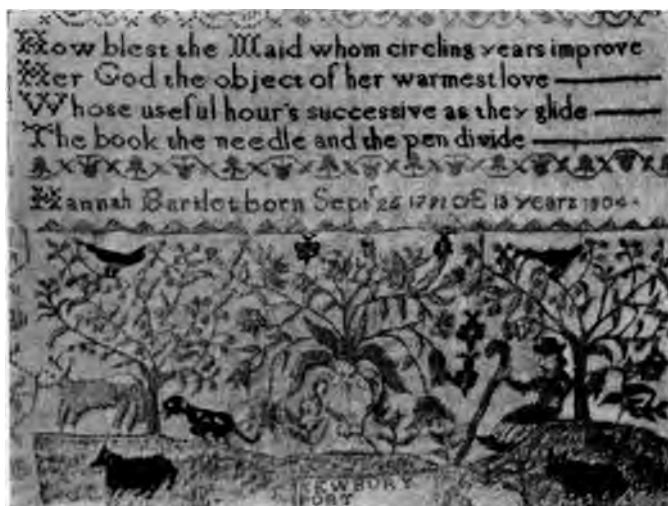 How blest the Maid whom circling years improve
Her God the object of her warmest love
Whose useful hour's successive as they glide
The book the needle and the pen divide
Hannah Bartlet born Septr 25 1791 Æ 13 years 1804
NEWBURY
PORT